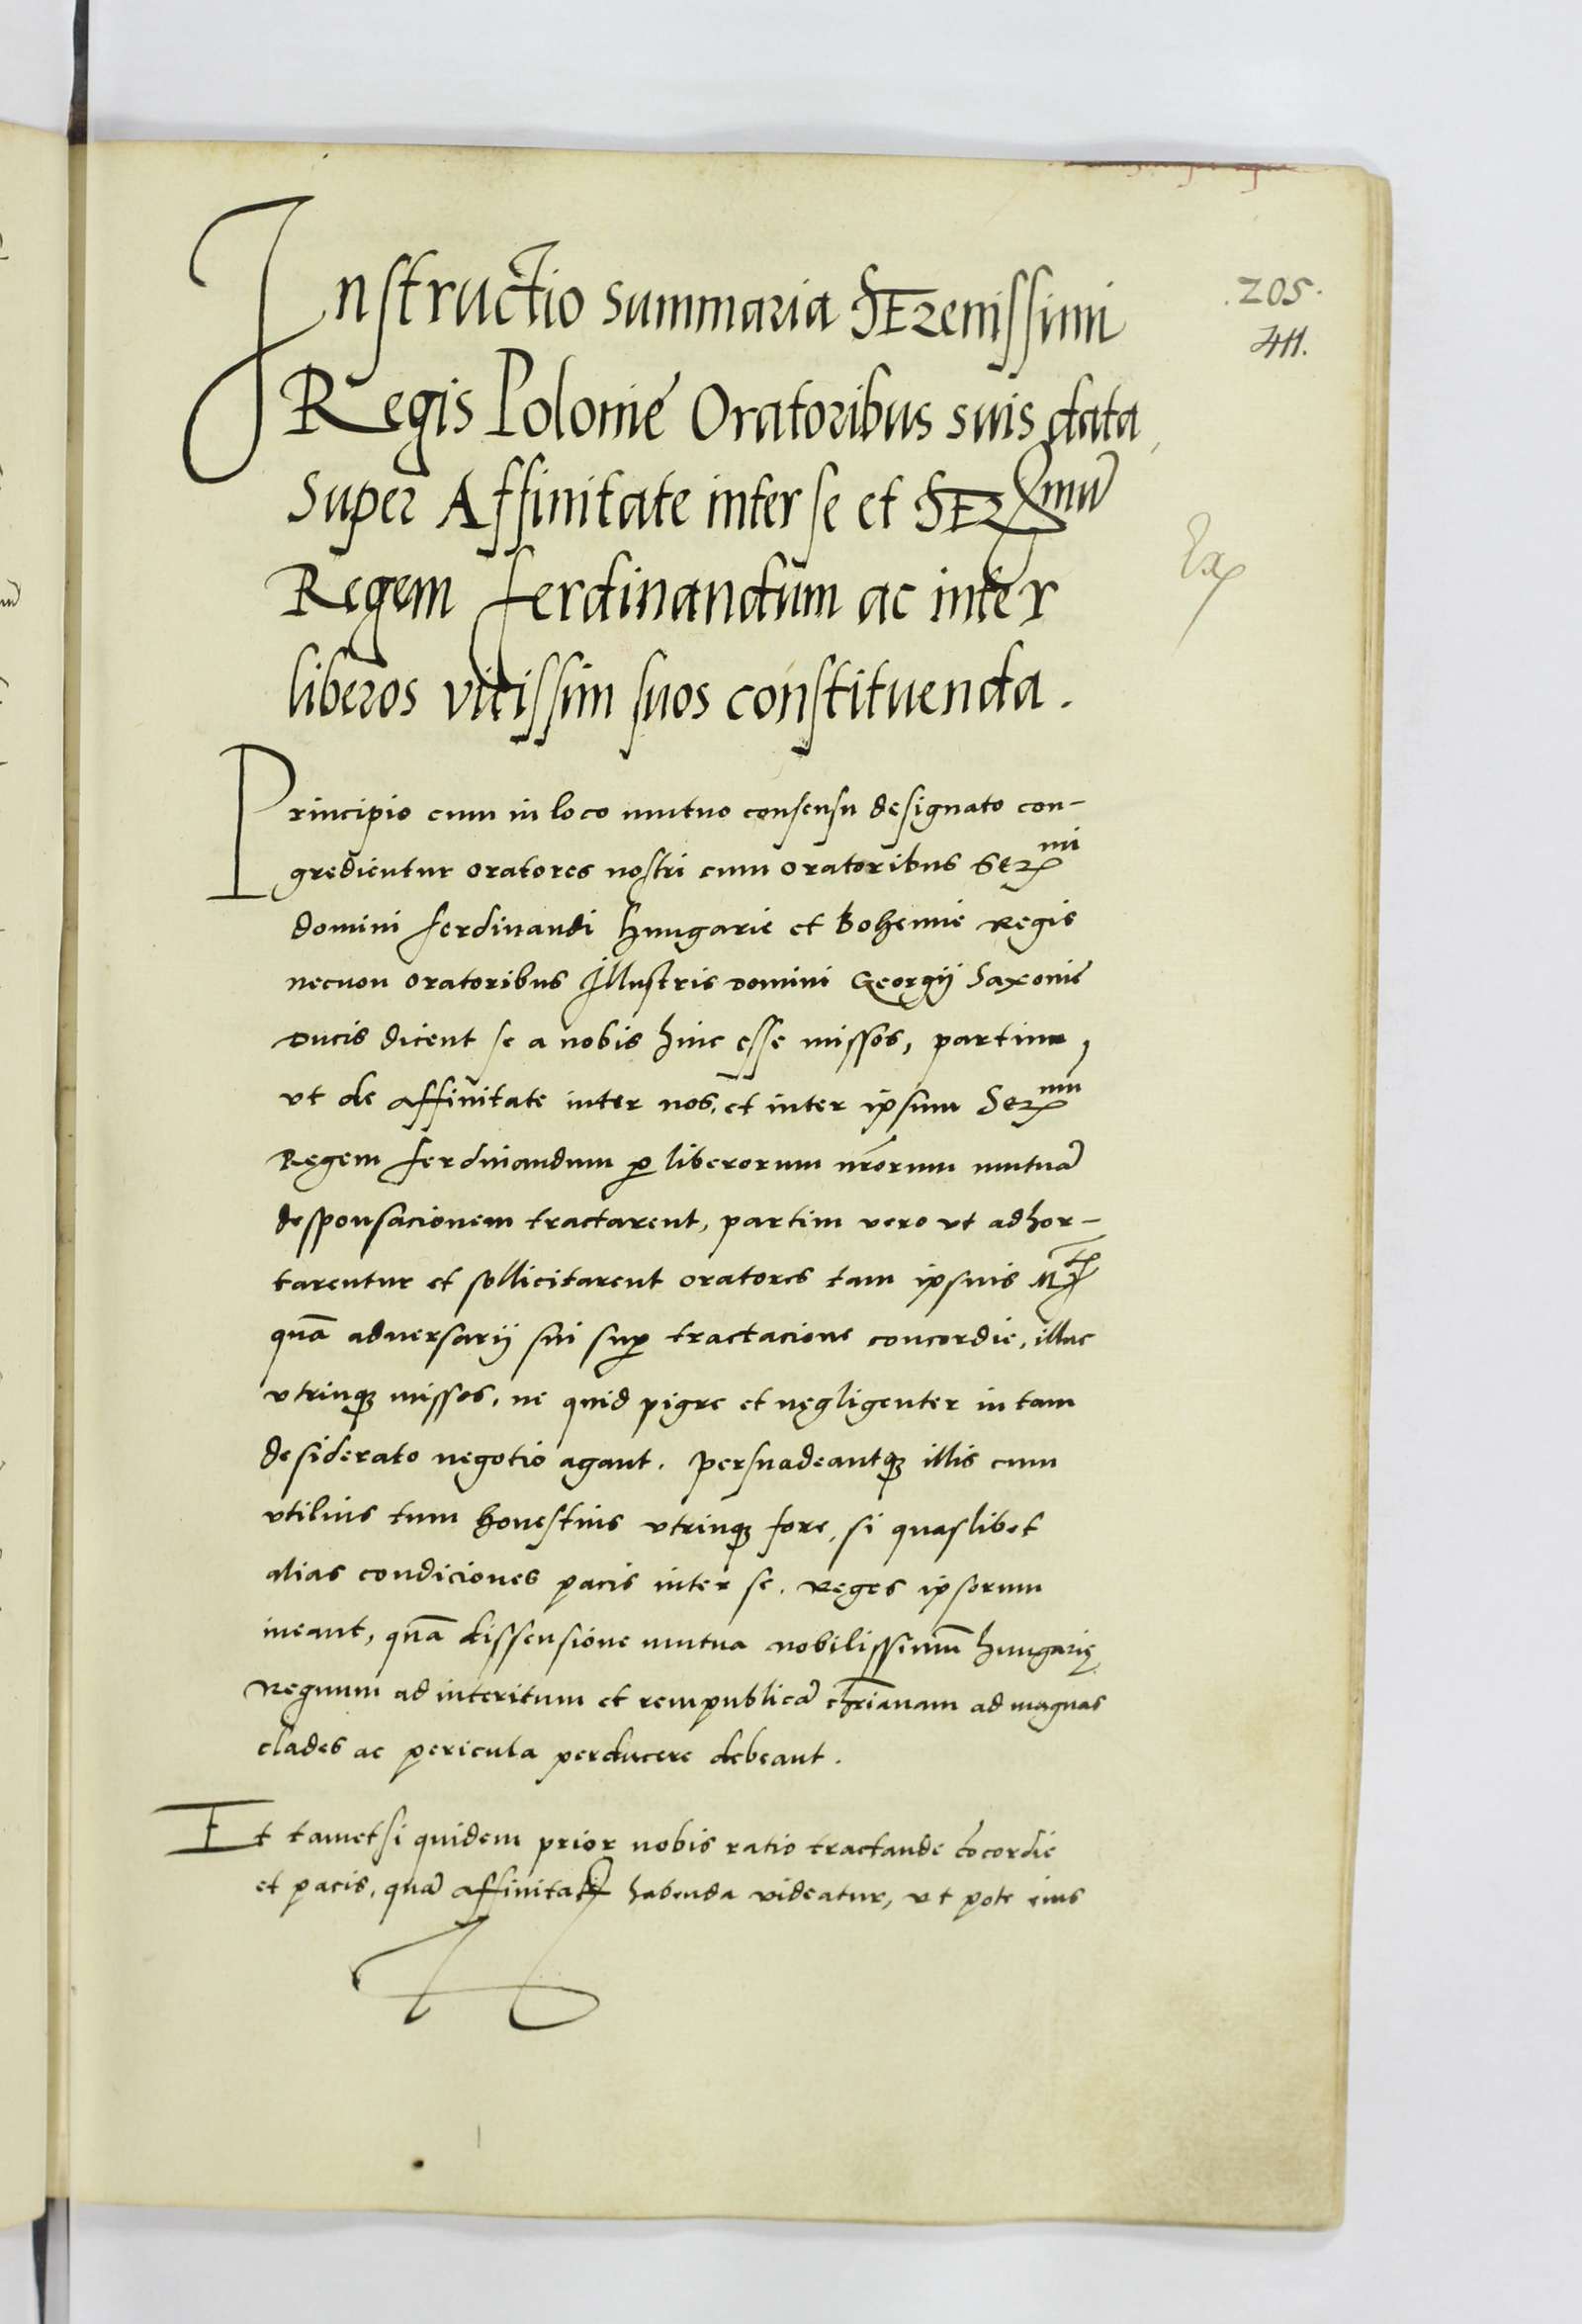 Instructio summaria Serenissimi
Regis Polonie Oratoribus suis data,
super Affinitate inter se et Serᵐᵘ̃
Regem ferdinandum ac inter
liberos vicissim suos constituenda.
205.
411.
Ex
Principio cum in loco mutuo consensu designato con-
gredientur oratores nostri cum oratoribus Serᵐⁱ
domini ferdinandi Hungarie et Bohemie Regis
necnon oratoribus Illustris domini Georgij Saxonie
Ducis dicent se a nobis hinc esse missos, partim,
vt de affinitate inter nos, et inter ipsum Serᵐᵘ̃
Regem ferdinandum ꝑ liberorum nr̃orum mutuã
desponsacionem tractarent, partim vero vt adhor-
tarentur et sollicitarent oratores tam ipsius Mᵗⁱˢ
quã adversarij sui suꝑ tractacione concordie, illuc
vtrinqꝫ missos, ne quid pigre et negligenter in tam
desiderato negotio agant. persuadeantqꝫ illis cum
vtilius tum honestius vtrinqꝫ fore, si quaslibet
alias condiciones pacis inter se, Reges ipsorum
ineant, quã dissensione mutua nobilissimũ hungarię
Regnum ad interitum et rempublicã chr̃ianam ad magnas
clades ac pericula perducere debeant.
Et tametsi quidem prior nobis ratio tractande cõcordie
et pacis, quã affinitatis habenda videatur, vt pote eius